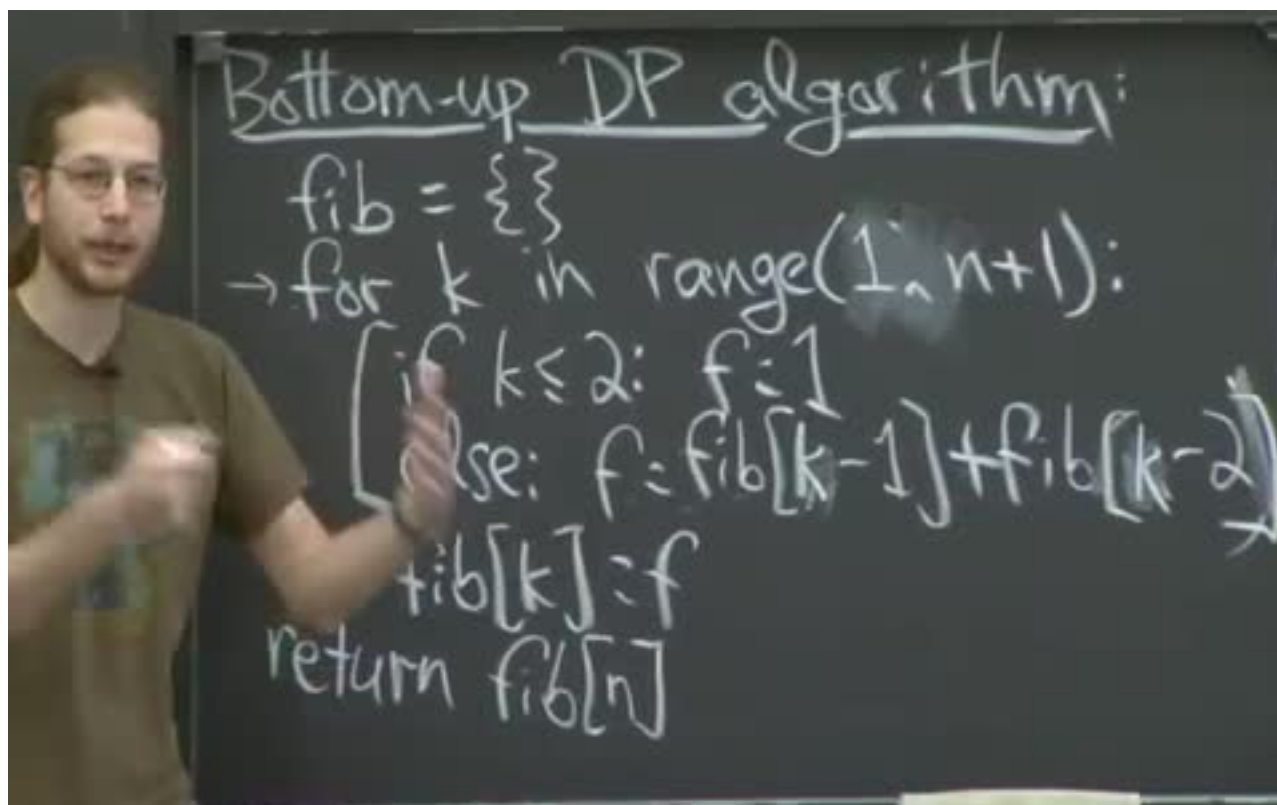 Bottom-up DP algorithm:
fib = {}
→ for k in range(1, n+1):
if k ≤ 2: f = 1
else: f = fib[k-1] + fib[k-2]
fib[k] = f
return fib[n]